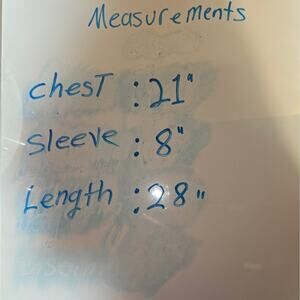 Measurements
chesT : 21"
Sleeve : 8"
Length : 28"